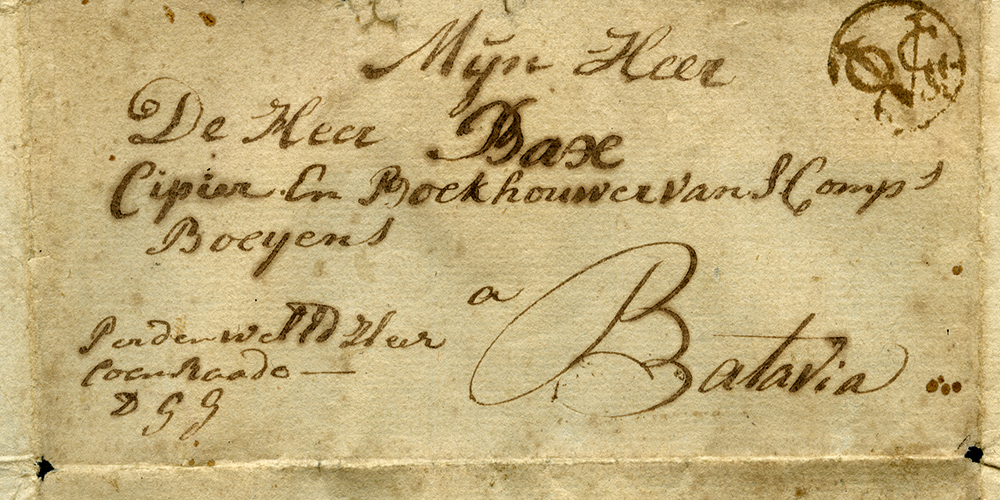 Mijn Heer
De Heer Baxe
Cipier En Boekhouwer van S Comps
Boeyens
a Batavia
Per den Heer
Coenraado
D G G